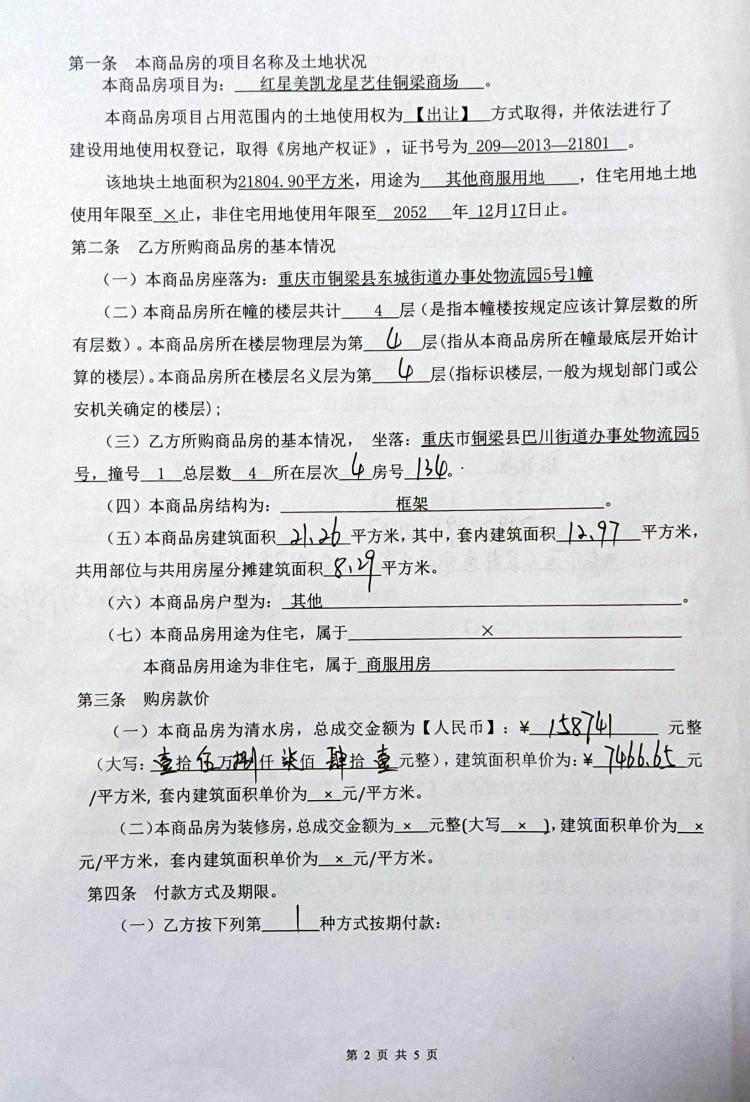 第一条 本商品房的项目名称及土地状况
本商品房项目为： 红星美凯龙星艺佳铜梁商场 。
本商品房项目占用范围内的土地使用权为【出让】 方式取得，并依法进行了
建设用地使用权登记，取得《房地产权证》，证书号为 209—2013—21801 。
该地块土地面积为21804.90平方米，用途为 其他商服用地 ，住宅用地土地
使用年限至 ×止，非住宅用地使用年限至 2052 年 12月17日止。
第二条 乙方所购商品房的基本情况
（一）本商品房座落为：重庆市铜梁县东城街道办事处物流园5号1幢
（二）本商品房所在幢的楼层共计 4 层（是指本幢楼按规定应该计算层数的所
有层数）。本商品房所在楼层物理层为第 4 层(指从本商品房所在幢最底层开始计
算的楼层)。本商品房所在楼层名义层为第 4 层(指标识楼层,一般为规划部门或公
安机关确定的楼层)；
（三）乙方所购商品房的基本情况， 坐落：重庆市铜梁县巴川街道办事处物流园5
号，撞号 1 总层数 4 所在层次 4 房号 134。
（四）本商品房结构为： 框架 。
（五）本商品房建筑面积 21.26 平方米，其中，套内建筑面积 12.97 平方米，
共用部位与共用房屋分摊建筑面积 8.29 平方米。
（六）本商品房户型为： 其他 。
（七）本商品房用途为住宅，属于 ×
本商品房用途为非住宅，属于 商服用房
第三条 购房款价
（一）本商品房为清水房，总成交金额为【人民币】：￥ 158741 元整
（大写：壹拾伍万捌仟柒佰肆拾壹元整），建筑面积单价为：￥ 7466.65 元
/平方米, 套内建筑面积单价为 × 元/平方米。
（二）本商品房为装修房，总成交金额为 × 元整(大写 × )，建筑面积单价为 ×
元/平方米，套内建筑面积单价为 × 元/平方米。
第四条 付款方式及期限。
（一）乙方按下列第 1 种方式按期付款：
第 2 页 共 5 页